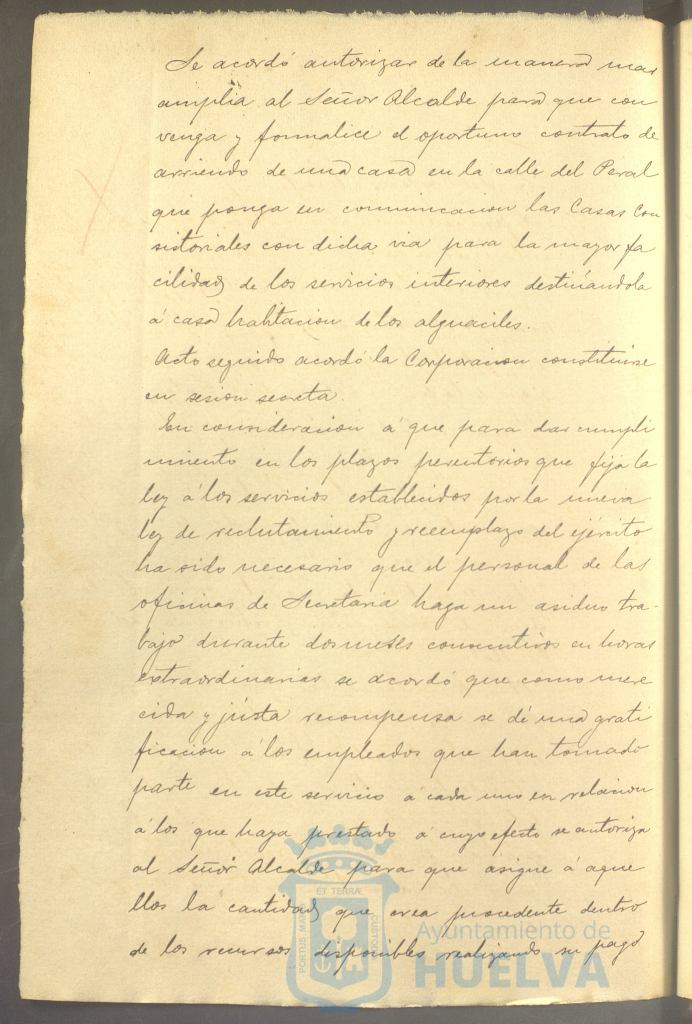 Se acordó autorizar de la manera mas
amplia al Señor Alcalde para que con
venga y formalice el oportuno contrato de
arriendo de una casa en la calle del Peral
que ponga en comunicacion las Casas Con
sistoriales con dicha via para la mayor fa
cilidad de los servicios interiores destinándola
á casa habitacion de los alguaciles.
Acto seguido acordó la Corporacion constituirse
en sesion secreta.
En consideracion á que para dar cumpli
miento en los plazos perentorios que fija la
ley á los servicios establecidos por la nueva
ley de reclutamiento y reemplazo del ejército
ha sido necesario que el personal de las
oficinas de Secretaria haga un asiduo tra-
bajo durante dos meses consecutivos en horas
extraordinarias se acordó que como mere
cida y justa recompensa se dé una grati
ficacion á los empleados que han tomado
parte en este servicio á cada uno en relacion
á los que haya prestado á cuyo efecto se autoriza
al Señor Alcalde para que asigne á aque
llos la cantidad que crea procedente dentro
de los recursos disponibles realizando su pago
PORTUS MARIS
ET TERRÆ
CUSTODIA
Ayuntamiento de
HUELVA